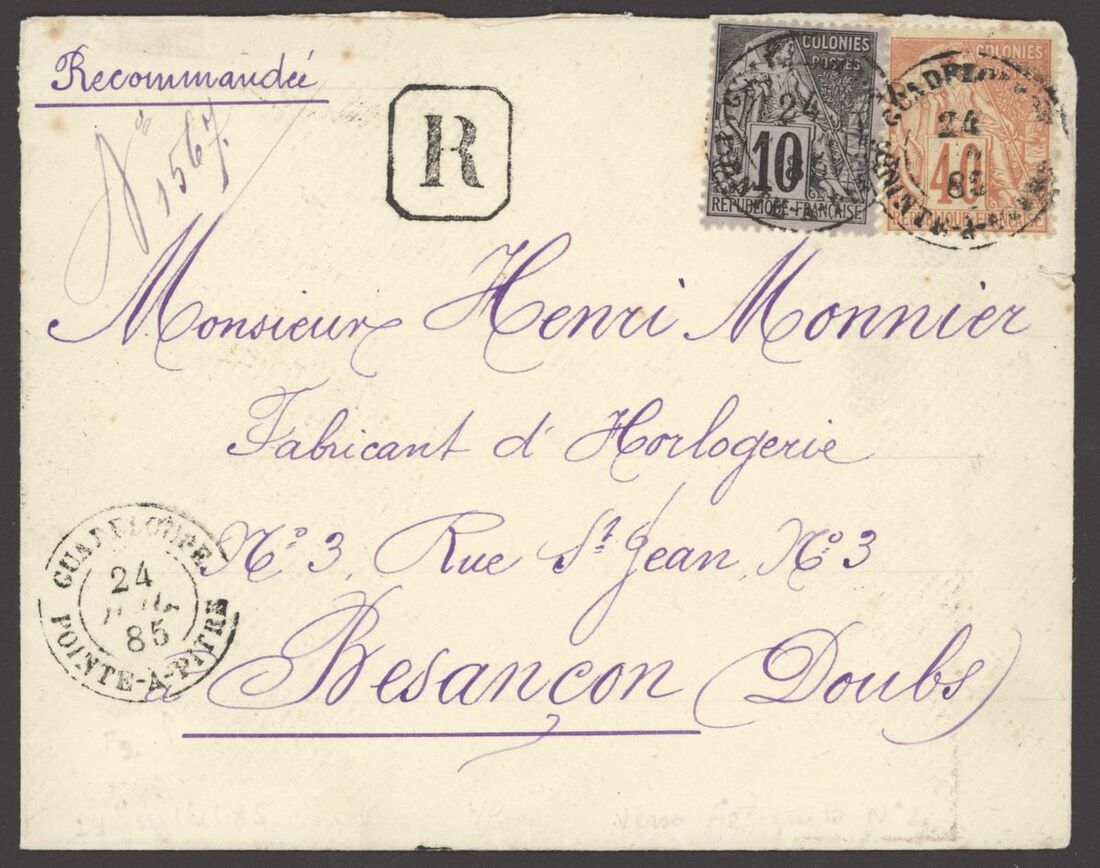 Recommandée
Nº 1567.
R
COLONIES
POSTES
10
RÉPUBLIQUE FRANÇAISE
COLONIES
40
RÉPUBLIQUE FRANÇAISE
GUADELOUPE
24
85
POINTE-A-PITRE
Monsieur Henri Monnier
Fabricant d'Horlogerie
Nº 3, Rue St Jean, Nº 3
à Besançon (Doubs)
GUADELOUPE
24
85
POINTE-A-PITRE